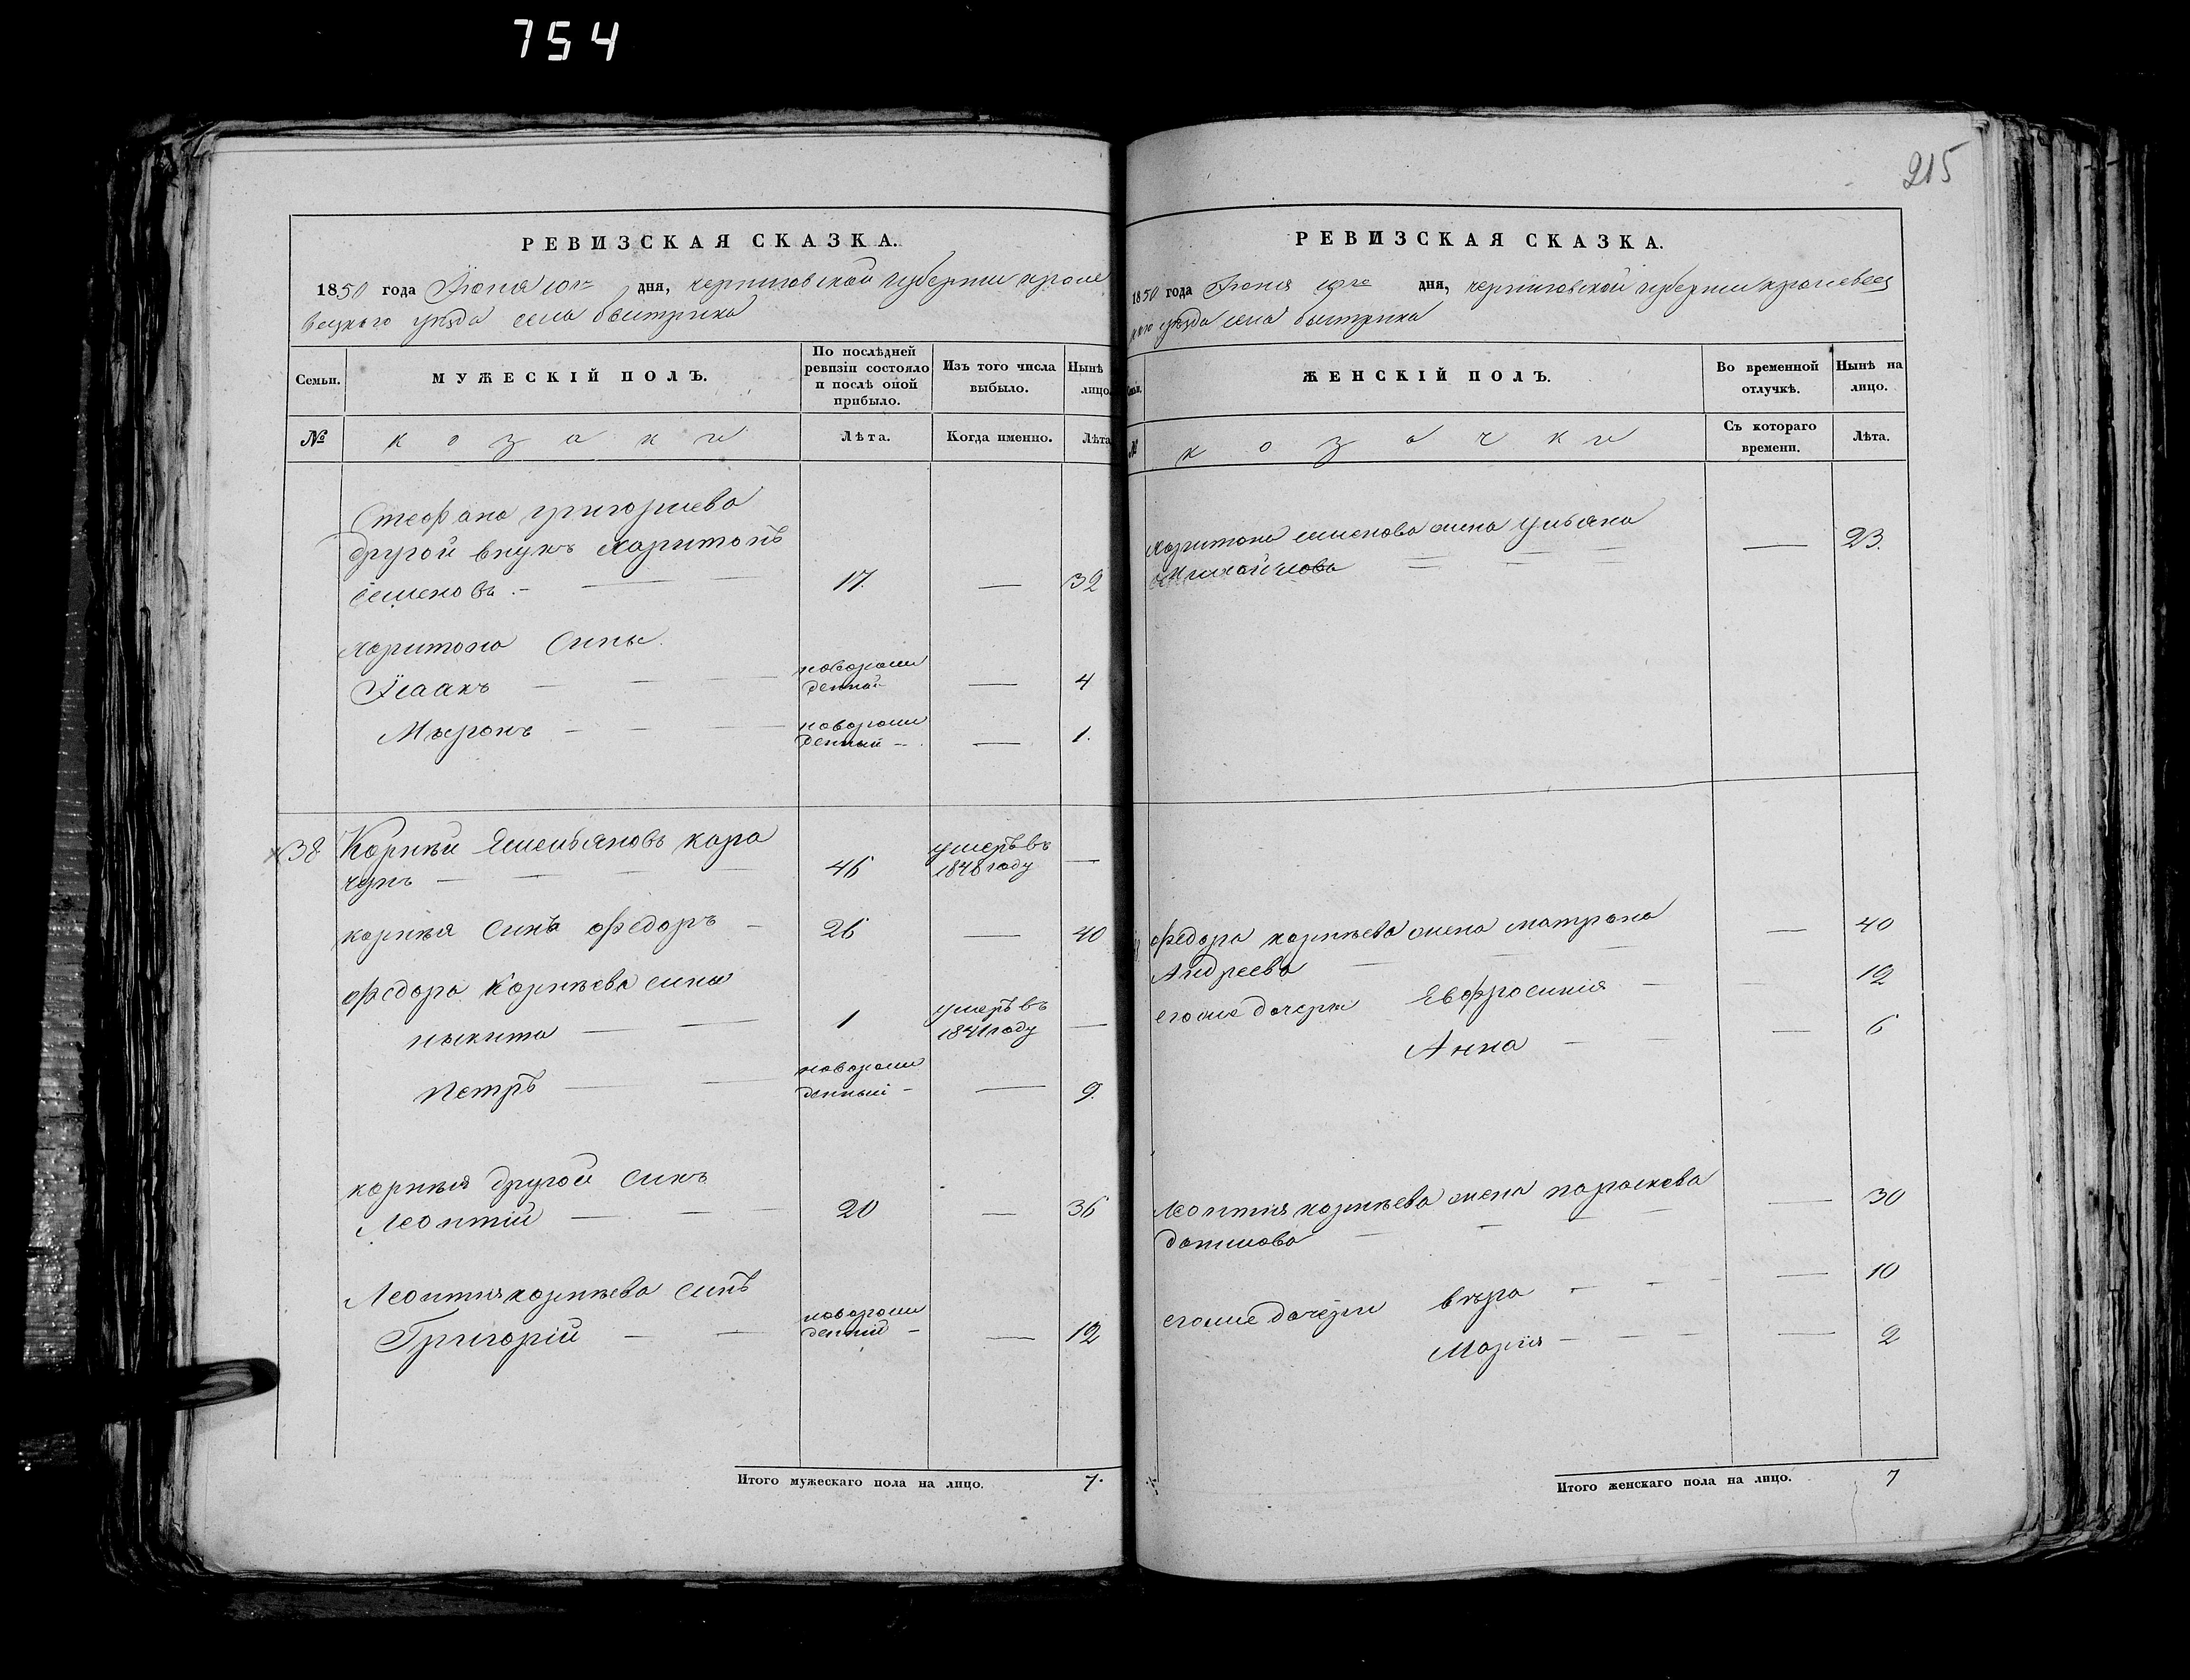 754
215
РЕВИЗСКАЯ СКАЗКА.
1850 года Июня 10го дня, черниговской губерніи кроле
вецкого уѣзда села быстрика
Семьи.
МУЖЕСКІЙ ПОЛЪ.
По послѣдней
ревизіи состояло
и послѣ оной
прибыло.
Изъ того числа
выбыло.
Нынѣ
лицо.
№
козаки
Лѣта.
Когда именно.
Лѣта
Стефана григориева
другой внукъ харитонъ
семеновъ. 17. — 32
харитона сины.
Исаакъ новорож
денной — 4
Мыронъ новорож
денный — 1.
38 Корнѣй Емельяновъ кара
чунъ 46 умеръ въ
1848 году —
корнѣя синъ федоръ 26 — 40
федора корнѣева сины
никита 1 умеръ въ
1841 году —
петръ новорож
денный — 9.
корнѣя другой синъ
Леонтій 20 — 36
Леонтия корнѣева синъ
Григорій новорож
денний — 12
Итого мужескаго пола на лицо. 7.
РЕВИЗСКАЯ СКАЗКА.
1850 года Июня 10го дня, черниговской губерніи кролевец
кого уѣзда села быстрика
ЖЕНСКІЙ ПОЛЪ.
Во временной
отлучкѣ.
Нынѣ на
лицо.
№
козачки
Съ котораго
времени.
Лѣта.
харитона семенова жена ульяна
михайлова — 23.
федора корнѣева жена матрона
Андреева — 40
егоже дочери Евфросинія — 12
Анна — 6
Леонтия корнѣева жена параскева
данилова — 30
егоже дочери вѣра — 10
Марія — 2
Итого женскаго пола на лицо. 7